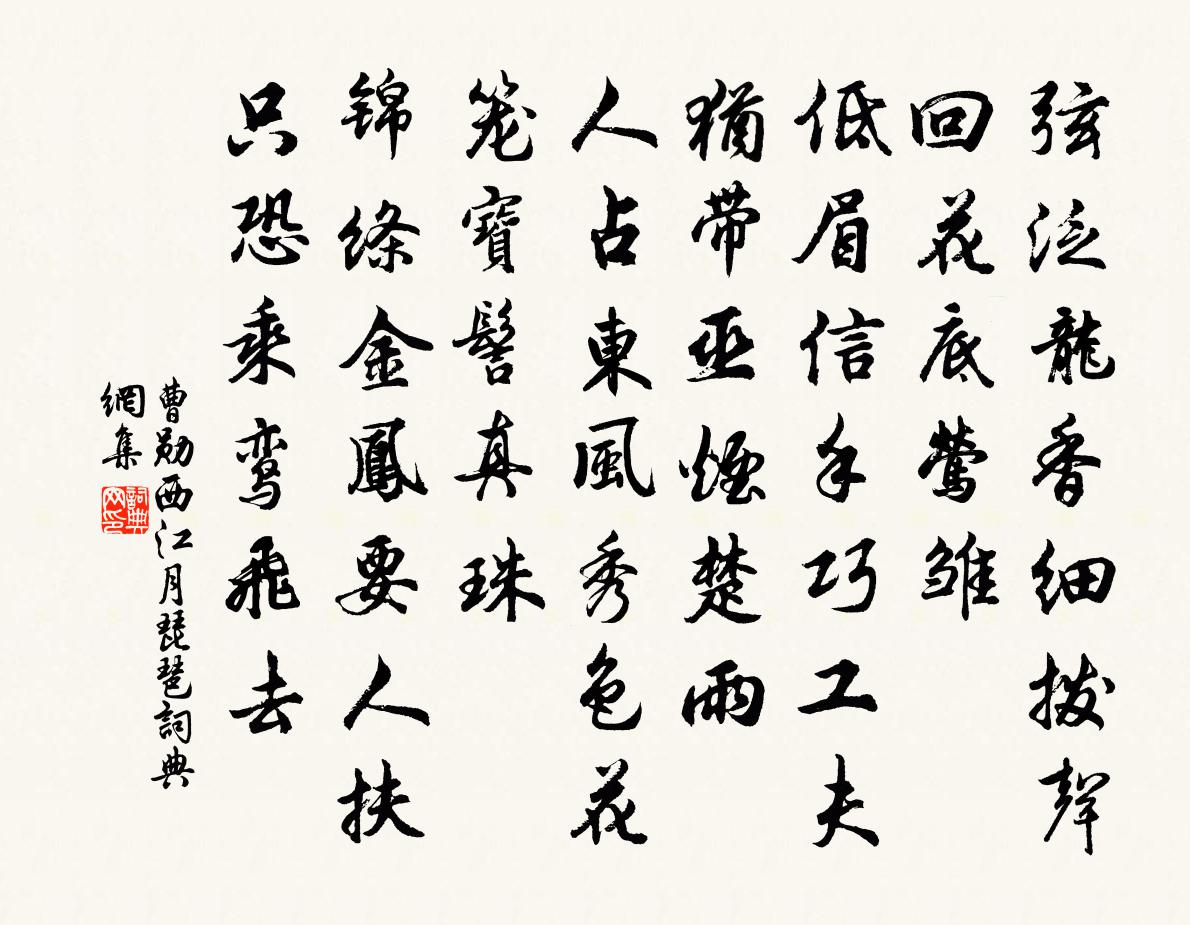 弦泛龍香細撥聲
回花底鶯雏
低眉信手巧工夫
猶帶巫煙楚雨
人占東風秀色花
笼寶髻真珠
锦絛金鳳要人扶
只恐乘鸾飛去
曹勋西江月琵琶詞典
網集
詞典网印